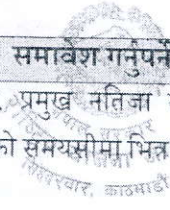 समावेश गर्नुपर्ने
प्रमुख नतिजा
को समयसीमा भित्र
काठमाडौं